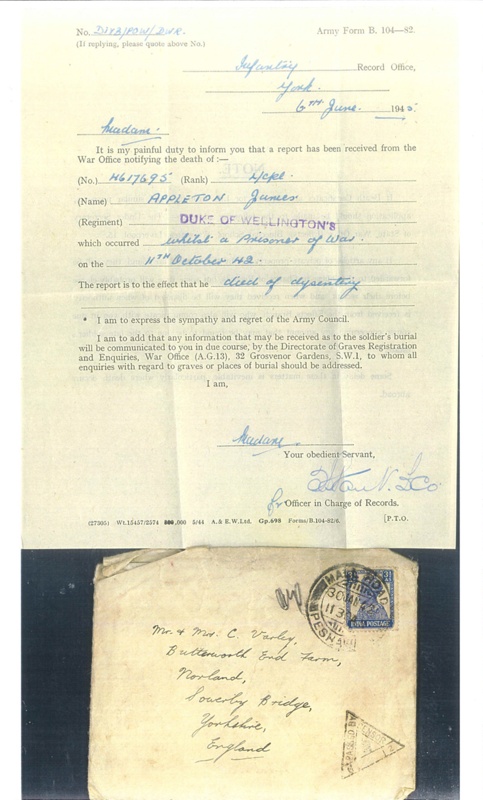 No. DIV3/POW/DWR.
Army Form B. 104—82.
(If replying, please quote above No.)
Infantry Record Office,
York.
6TH June. 1945
Madam,
It is my painful duty to inform you that a report has been received from the
War Office notifying the death of :—
(No.) 4617695 (Rank) L/Cpl.
(Name) APPLETON James
(Regiment) DUKE OF WELLINGTON'S
which occurred whilst a Prisoner of War.
on the 11TH October 42.
The report is to the effect that he died of dysentry
* I am to express the sympathy and regret of the Army Council.
I am to add that any information that may be received as to the soldier's burial
will be communicated to you in due course, by the Directorate of Graves Registration
and Enquiries, War Office (A.G.13), 32 Grosvenor Gardens, S.W.1, to whom all
enquiries with regard to graves or places of burial should be addressed.
I am,
Madam.
Your obedient Servant,
for Officer in Charge of Records.
(27305) Wt.15457/2574 000 5/44 A.& E.W.Ltd. Gp.698 Forms/B.104-82/6. [P.T.O.
MALL ROAD
30 JAN
11 30
PESHAWAR
INDIA POSTAGE
Mr. & Mrs. C. Varley,
Butterworth End Farm,
Norland,
Sowerby Bridge,
Yorkshire,
England
PASSED BY
CENSOR